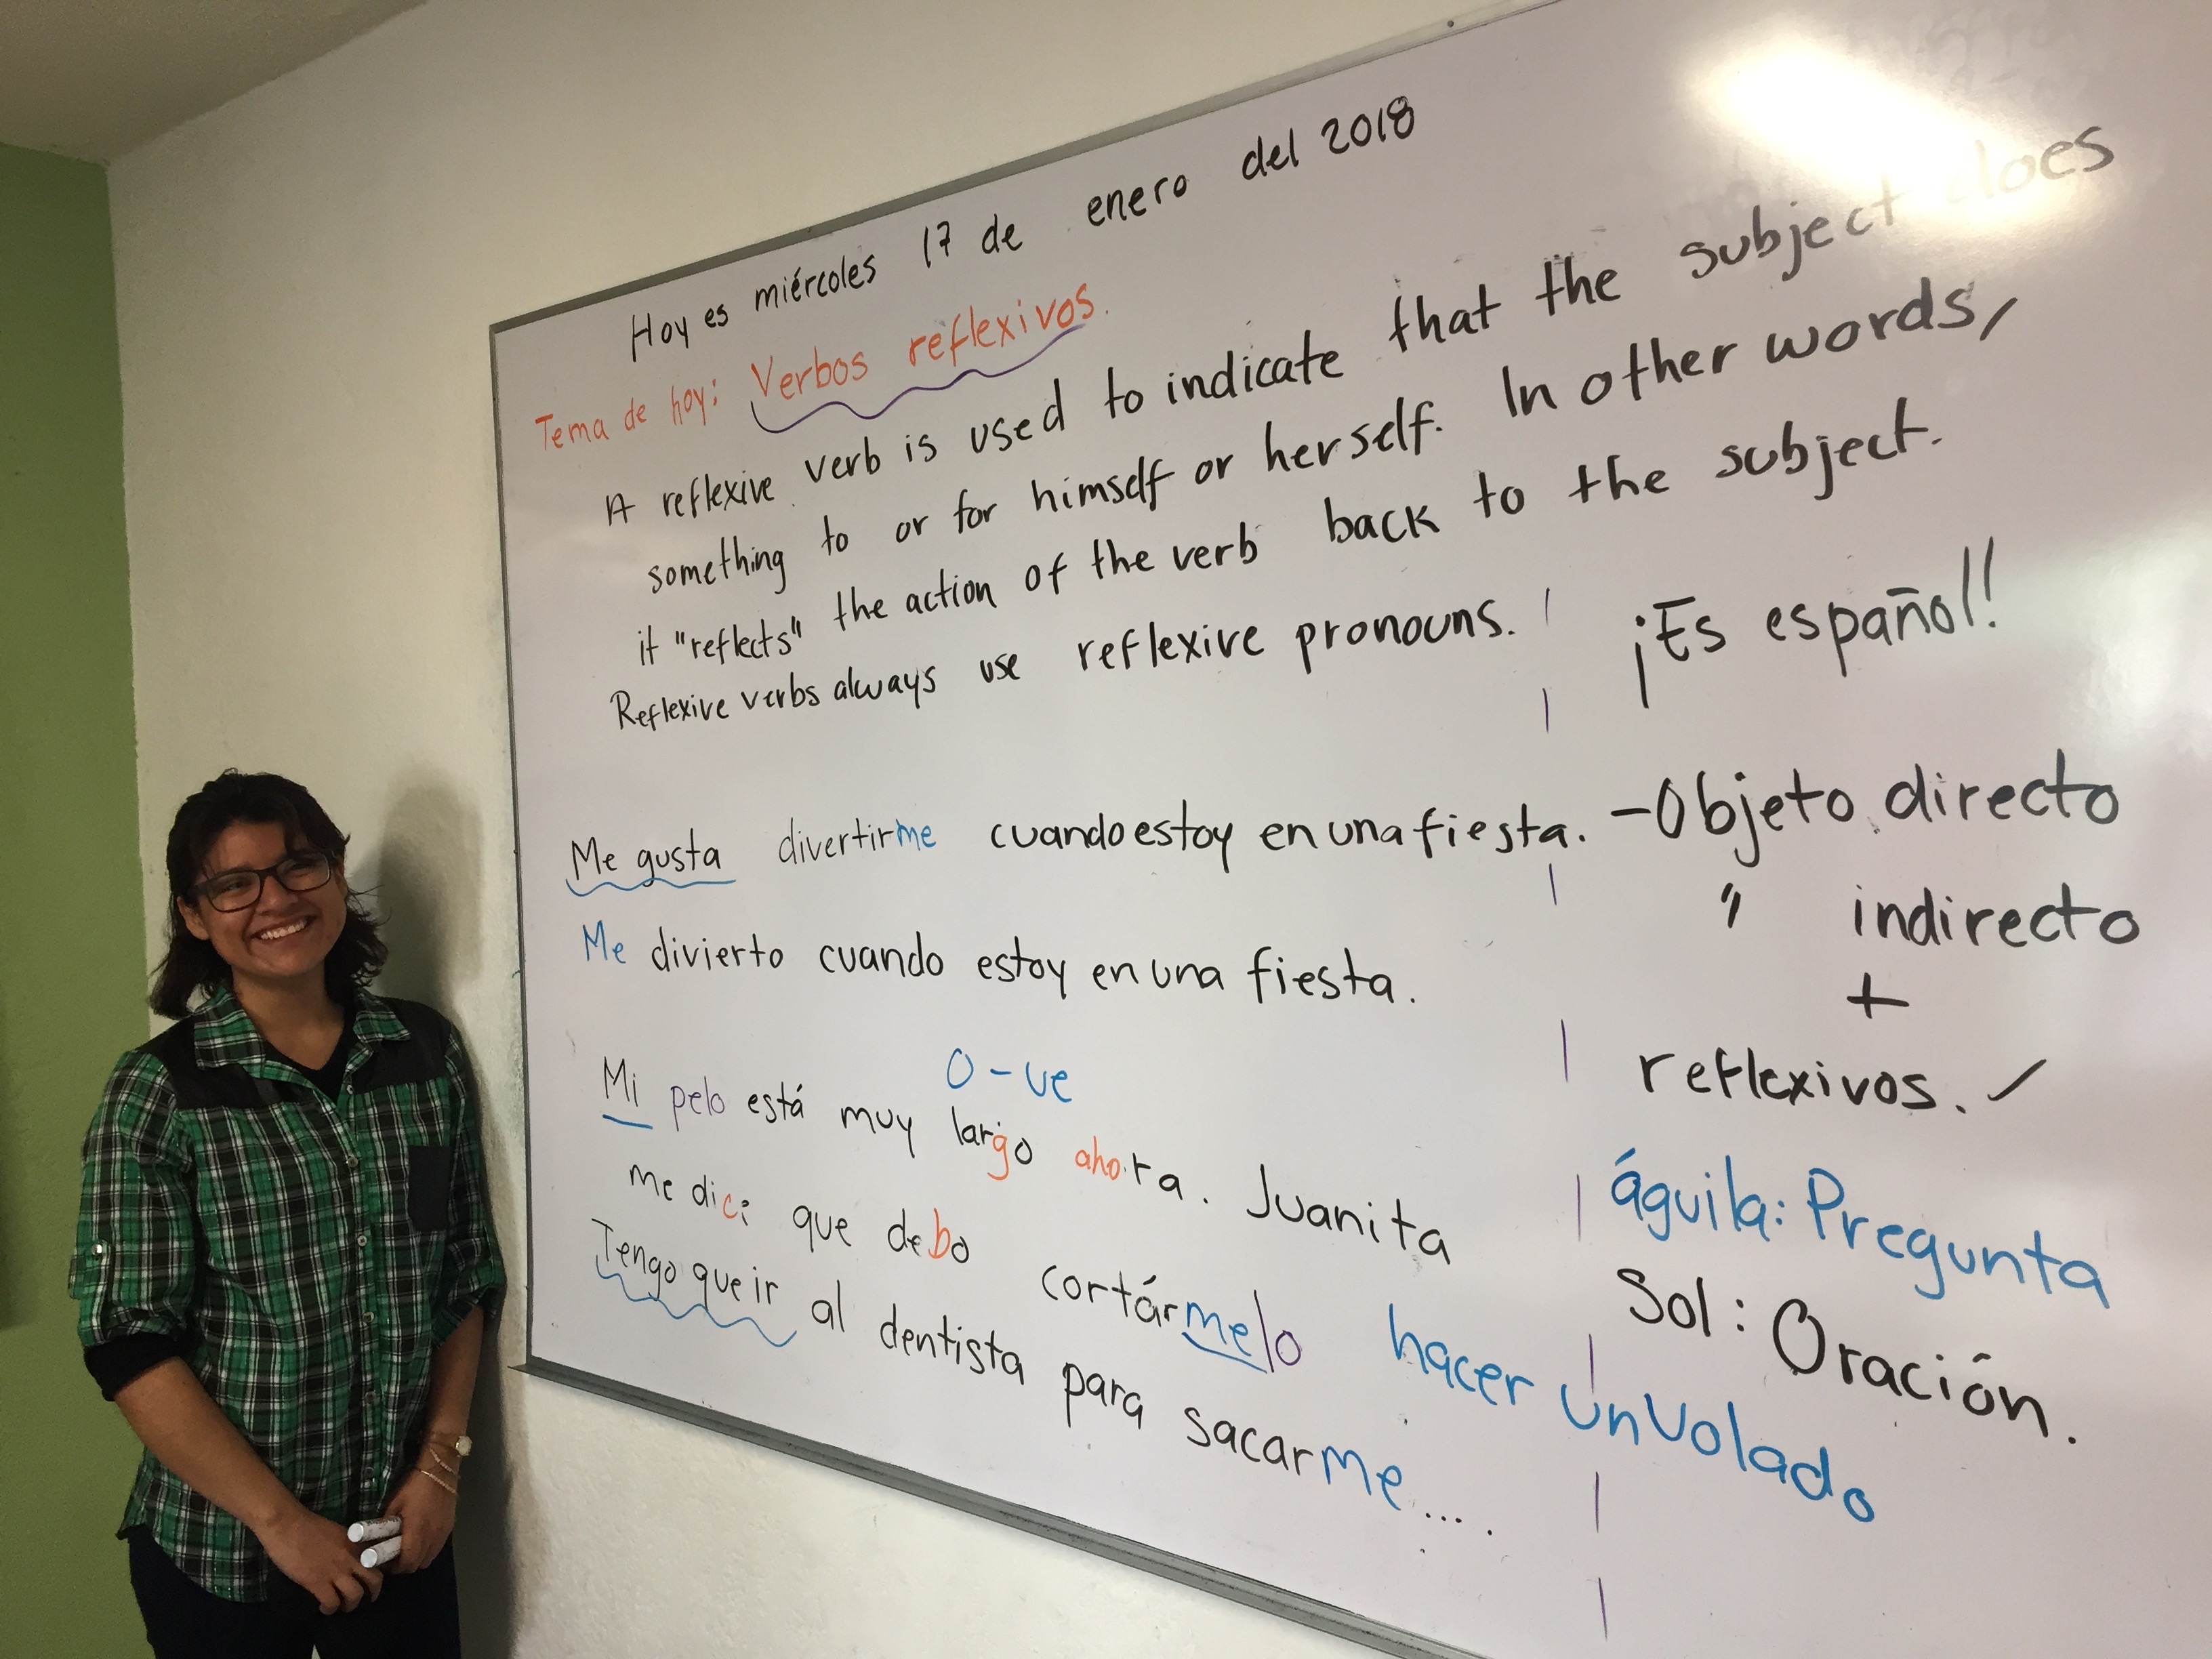 Hoy es miércoles 17 de enero del 2018
Tema de hoy: Verbos reflexivos.
A reflexive verb is used to indicate that the subject does
something to or for himself or herself. In other words,
it "reflects" the action of the verb back to the subject.
Reflexive verbs always use reflexive pronouns.
Me gusta divertirme cuando estoy en una fiesta.
Me divierto cuando estoy en una fiesta.
O-ue
Mi pelo está muy largo ahora. Juanita
me dice que debo cortármelo
Tengo que ir al dentista para sacarme....
¡Es español!
-Objeto directo
" indirecto
+
reflexivos. ✓
águila: Pregunta
Sol: Oración.
hacer un volado